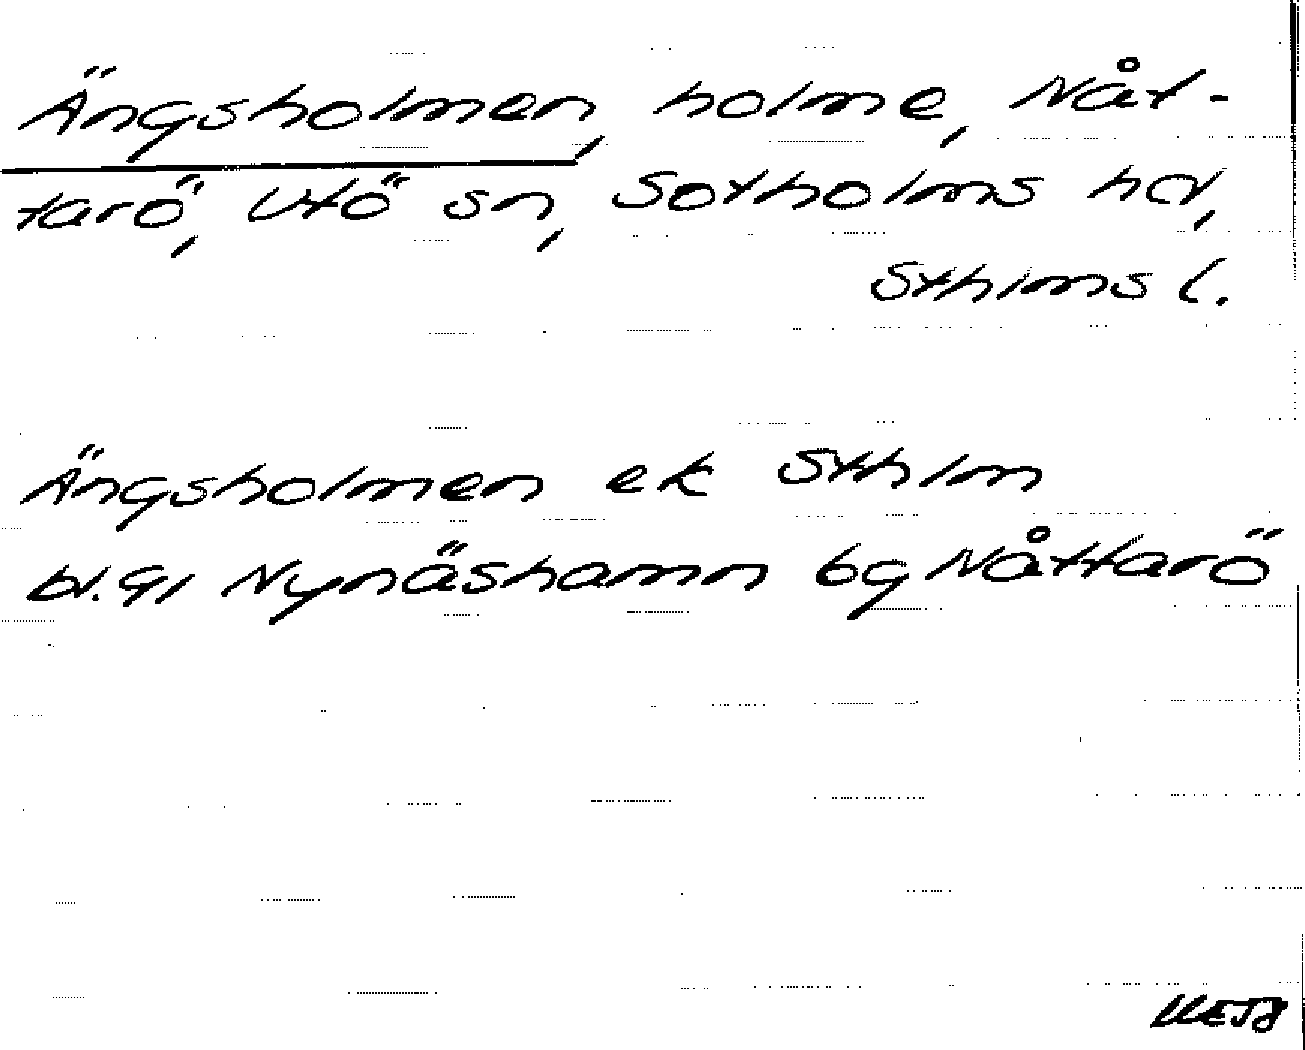 Ängsholmen, holme, Nåt-
tarö, Utö sn, Sotholms hd,
Sthlms l.
Ängsholmen ek Sthlm
bl. 91 Nynäshamn bg Nåttarö